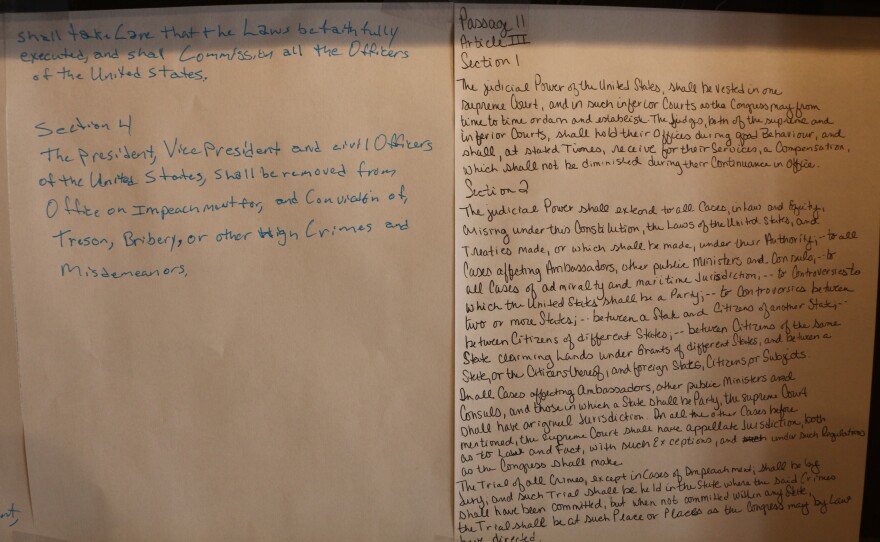 shall take Care that the Laws be faithfully
executed, and shal Commission all the Officers
of the United States.
Section 4
The President, Vice President and civil Officers
of the United States, shall be removed from
Office on Impeachment for, and Conviction of,
Treson, Bribery, or other High Crimes and
Misdemeanors.
Passage 11
Article III
Section 1
The judicial Power of the United States, shall be vested in one
supreme Court, and in such inferior Courts as the Congress may from
time to time ordain and establish. The Judges, both of the supreme and
inferior Courts, shall hold their Offices during good Behaviour, and
shall, at stated Times, receive for their Services, a Compensation,
which shall not be diminished during their Continuance in Office.
Section 2
The judicial Power shall extend to all Cases, in Law and Equity,
arising under this Constitution, the Laws of the United States, and
Treaties made, or which shall be made, under their Authority;-- to all
Cases affecting Ambassadors, other public Ministers and Consuls;-- to
all Cases of admiralty and maritime Jurisdiction;-- to Controversies to
which the United States shall be a Party;-- to Controversies between
two or more States;-- between a State and Citizens of another State;--
between Citizens of different States;-- between Citizens of the same
State claiming Lands under Grants of different States, and between a
State, or the Citizens thereof, and foreign States, Citizens or Subjects.
In all Cases affecting Ambassadors, other public Ministers and
Consuls, and those in which a State shall be Party, the supreme Court
shall have original Jurisdiction. In all the other Cases before
mentioned, the supreme Court shall have appellate Jurisdiction, both
as to Law and Fact, with such Exceptions, and under such Regulations
as the Congress shall make
The Trial of all Crimes, except in Cases of Impeachment, shall be by
Jury, and such Trial shall be held in the State where the said Crimes
shall have been committed, but when not committed within any State,
the Trial shall be at such Place or Places as the Congress may by Law
have directed.